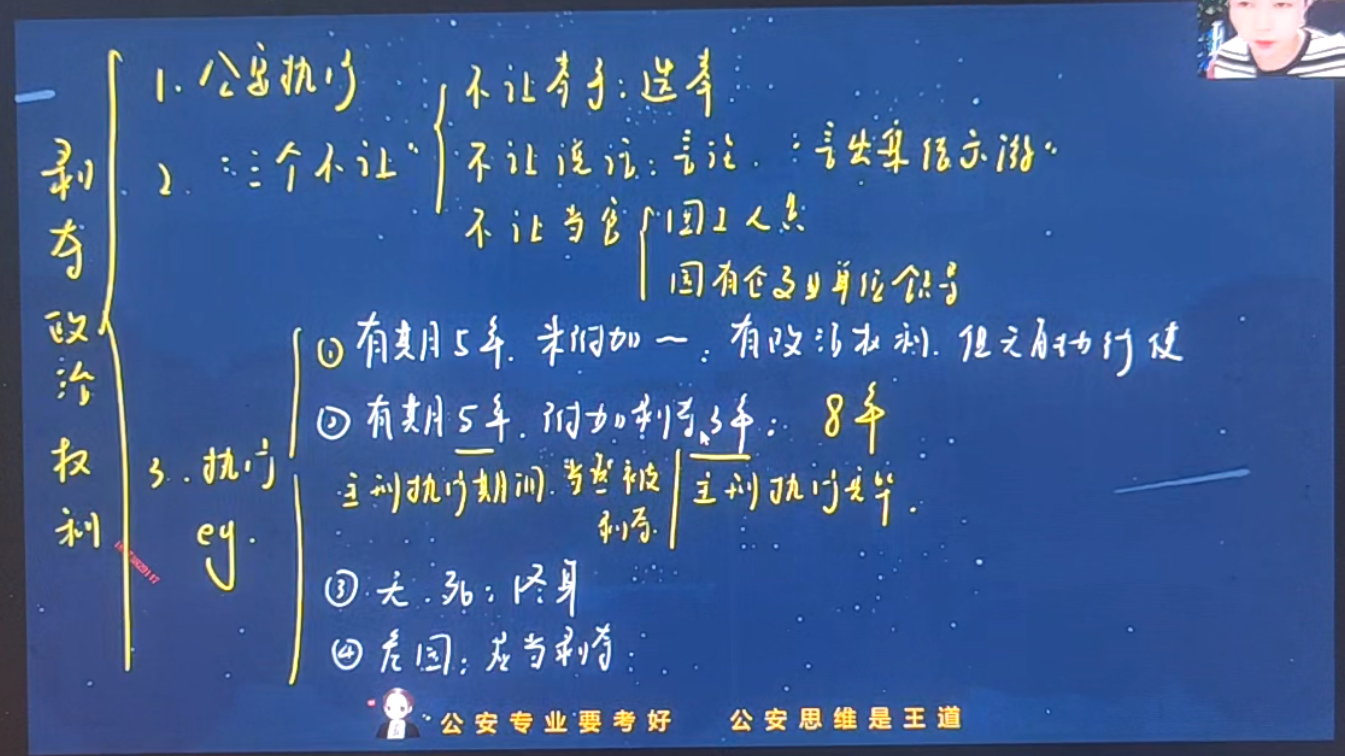 剥夺政治权利
1. 公安执行
2. “三个不让”
不让举手：选举
不让说话：言论．“言出集结示游”
不让当官
国工人员
国有企事业单位领导
3. 执行
eg.
① 有期5年．未附加一：有政治权利．但无自由行使
② 有期5年．附加剥夺3年：8年
主刑执行期间．当然被剥夺
主刑执行完毕．
③ 无．死：终身
④ 危国：应当剥夺
公安专业要考好 公安思维是王道